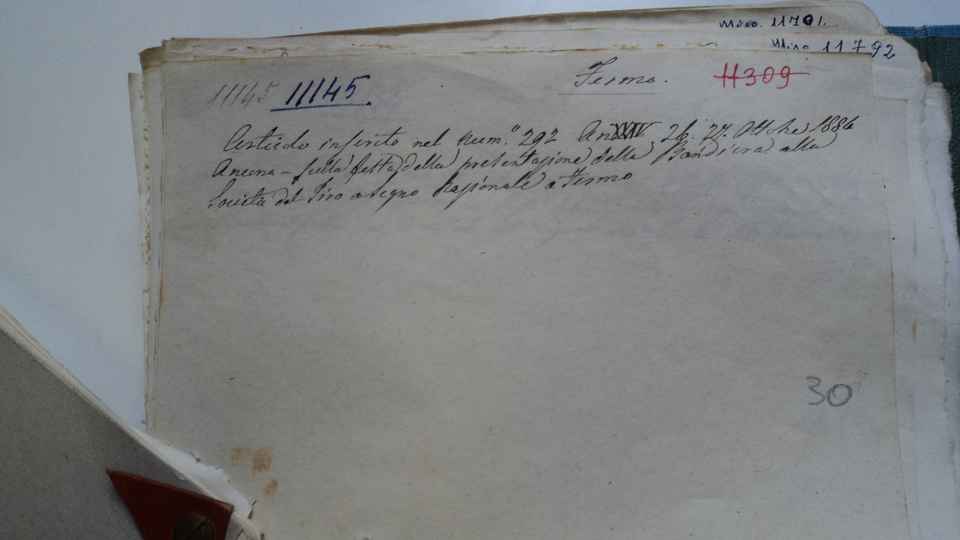 Misc. 11791.
Misc. 11792
11145 11145. Fermo. 11309
Articolo inserito nel num.o 292 An XXIV 26. 27. Ottobre 1886
Ancona - sulla festa della presentazione della Bandiera alla
Società del Tiro a Segno Nazionale a Fermo
30